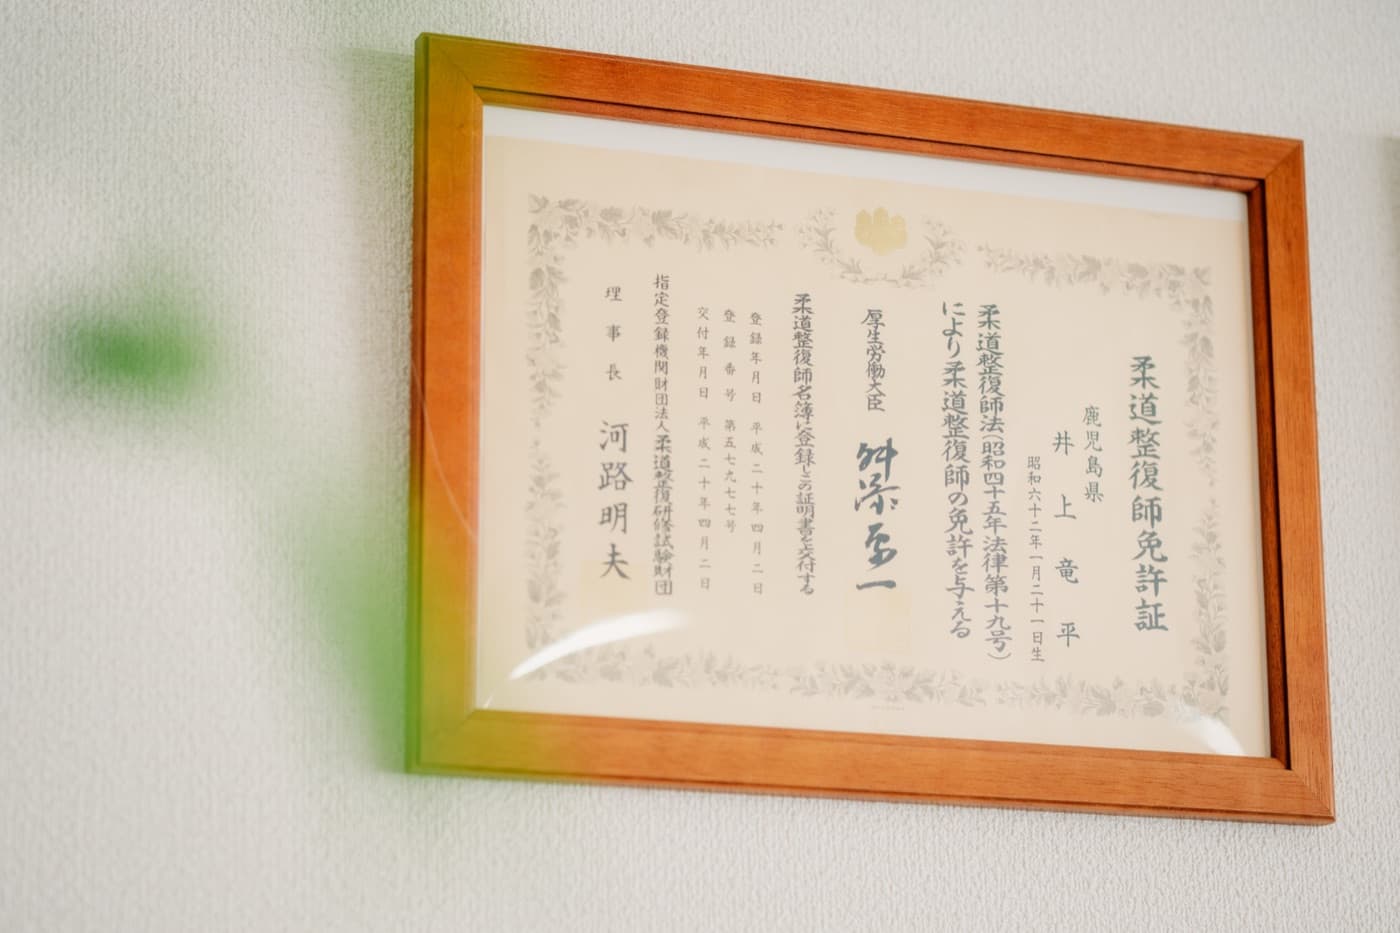 柔道整復師免許証
鹿児島県
井上竜平
昭和六十二年一月二十一日生
柔道整復師法(昭和四十五年法律第十九号)
により柔道整復師の免許を与える
厚生労働大臣 舛添要一
柔道整復師名簿に登録しこの証明書を交付する
登録年月日 平成二十年四月二日
登録番号 第五七九七七号
交付年月日 平成二十年四月二日
指定登録機関財団法人柔道整復研修試験財団
理事長 河路明夫